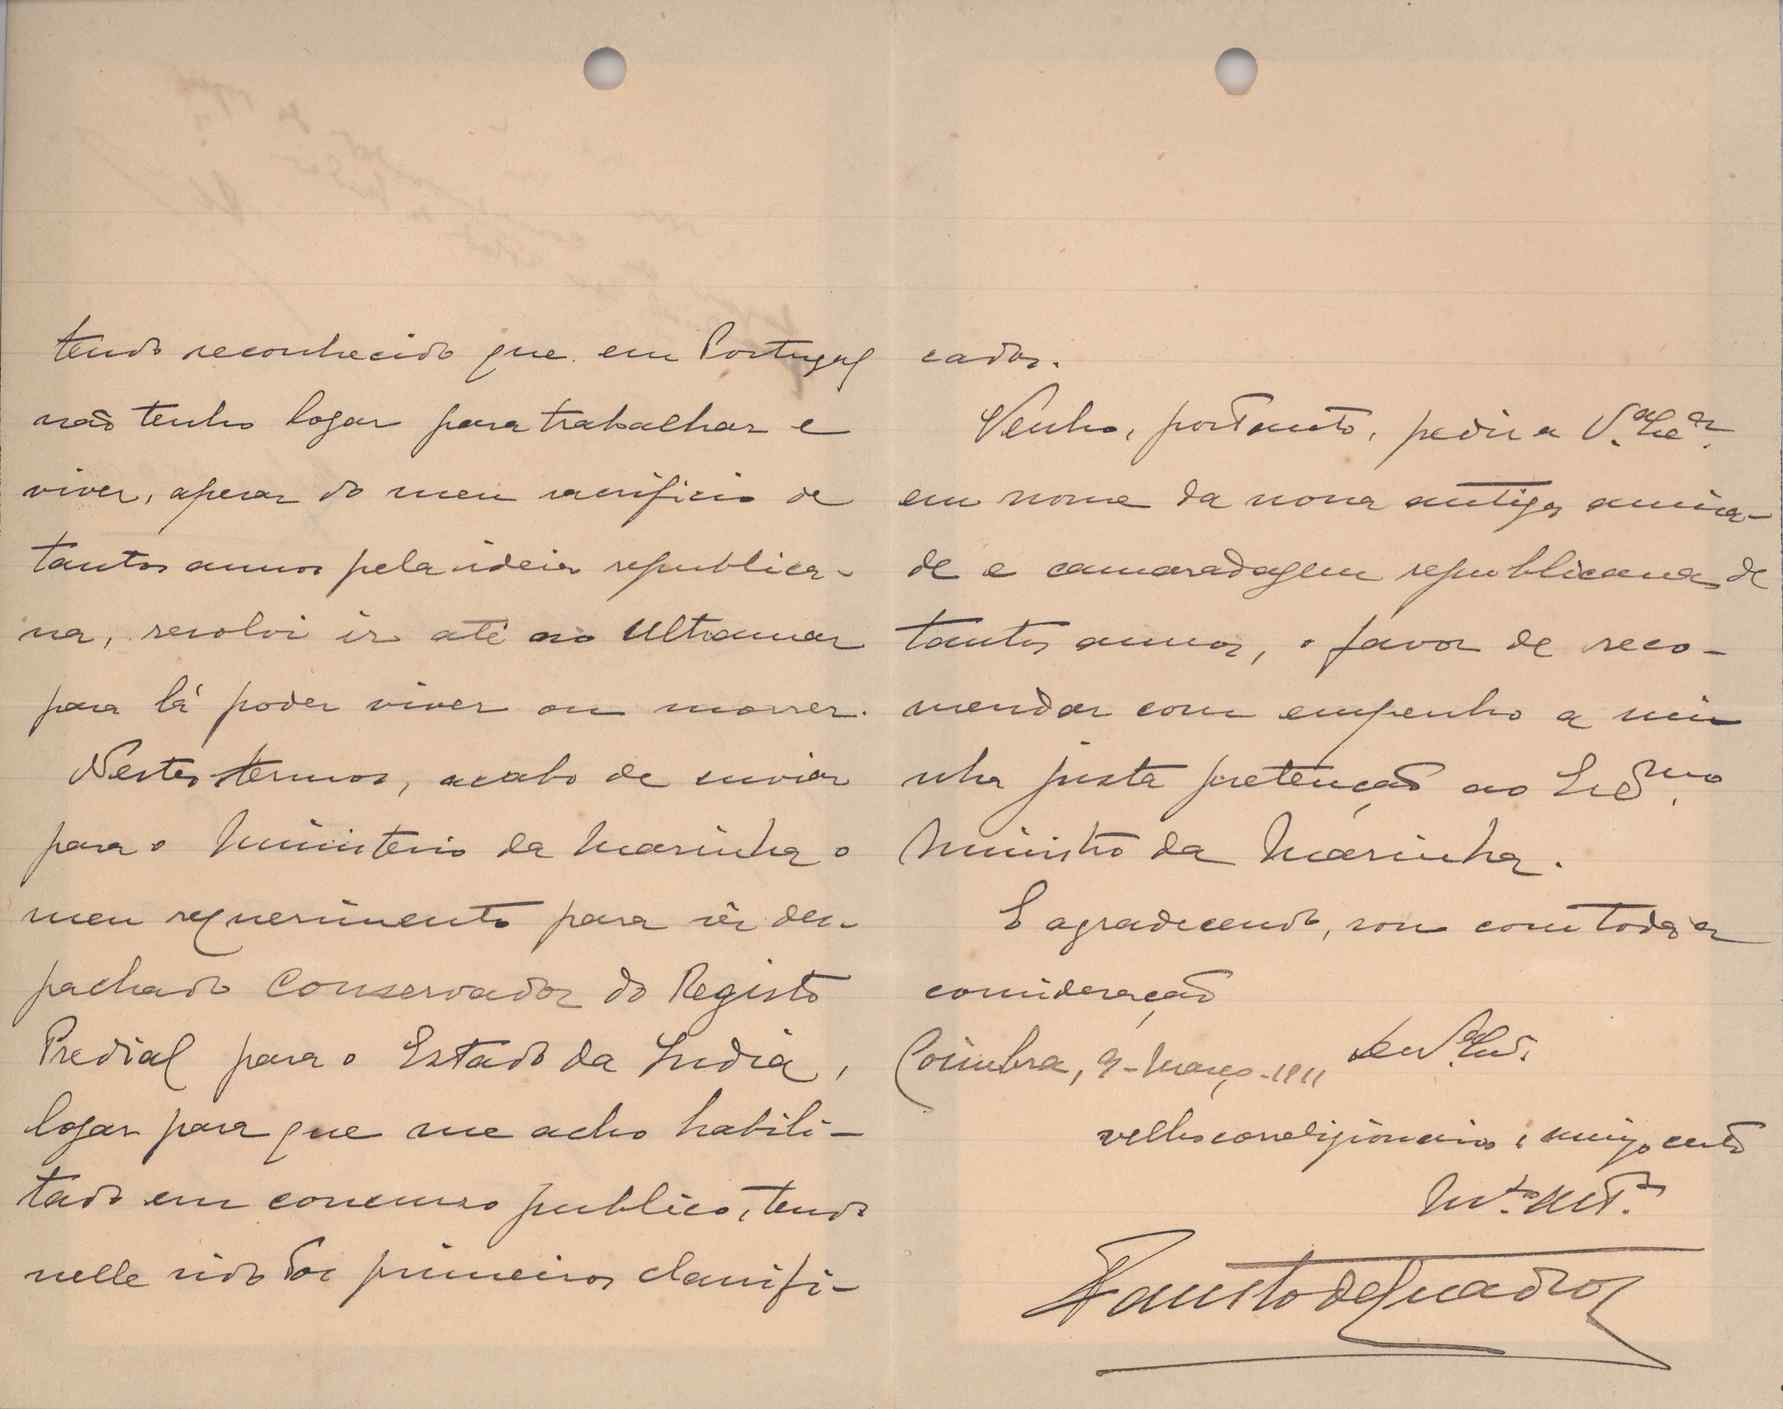 tendo reconhecido que em Portugal
não tenho logar para trabalhar e
viver, apesar do meu sacrificio de
tantos annos pela ideia republica-
na, resolvi ir até ao Ultramar
para lá poder viver ou morrer.
Nestes termos, acabo de enviar
para o Ministerio da Marinha o
meu requerimento para sêr des-
pachado Conservador do Registo
Predial para o Estado da India,
logar para que me acho habili-
tado em concurso publico, tendo
nelle sido dos primeiros classifi-
cados.
Venho, portanto, pedir a V.ª Ex.ª
em nome da nossa antiga amisa-
de e camaradagem republicana de
tantos annos, o favor de reco-
mendar com empenho a mi
nha justa pretenção ao Ex.mo
Ministro da Marinha.
E agradecendo, sou com toda a
consideração
Coimbra, 9-Março-1911
de V.ª Ex.ª
velho correligionario e amigo certo
M.to
Fausto de Quadros